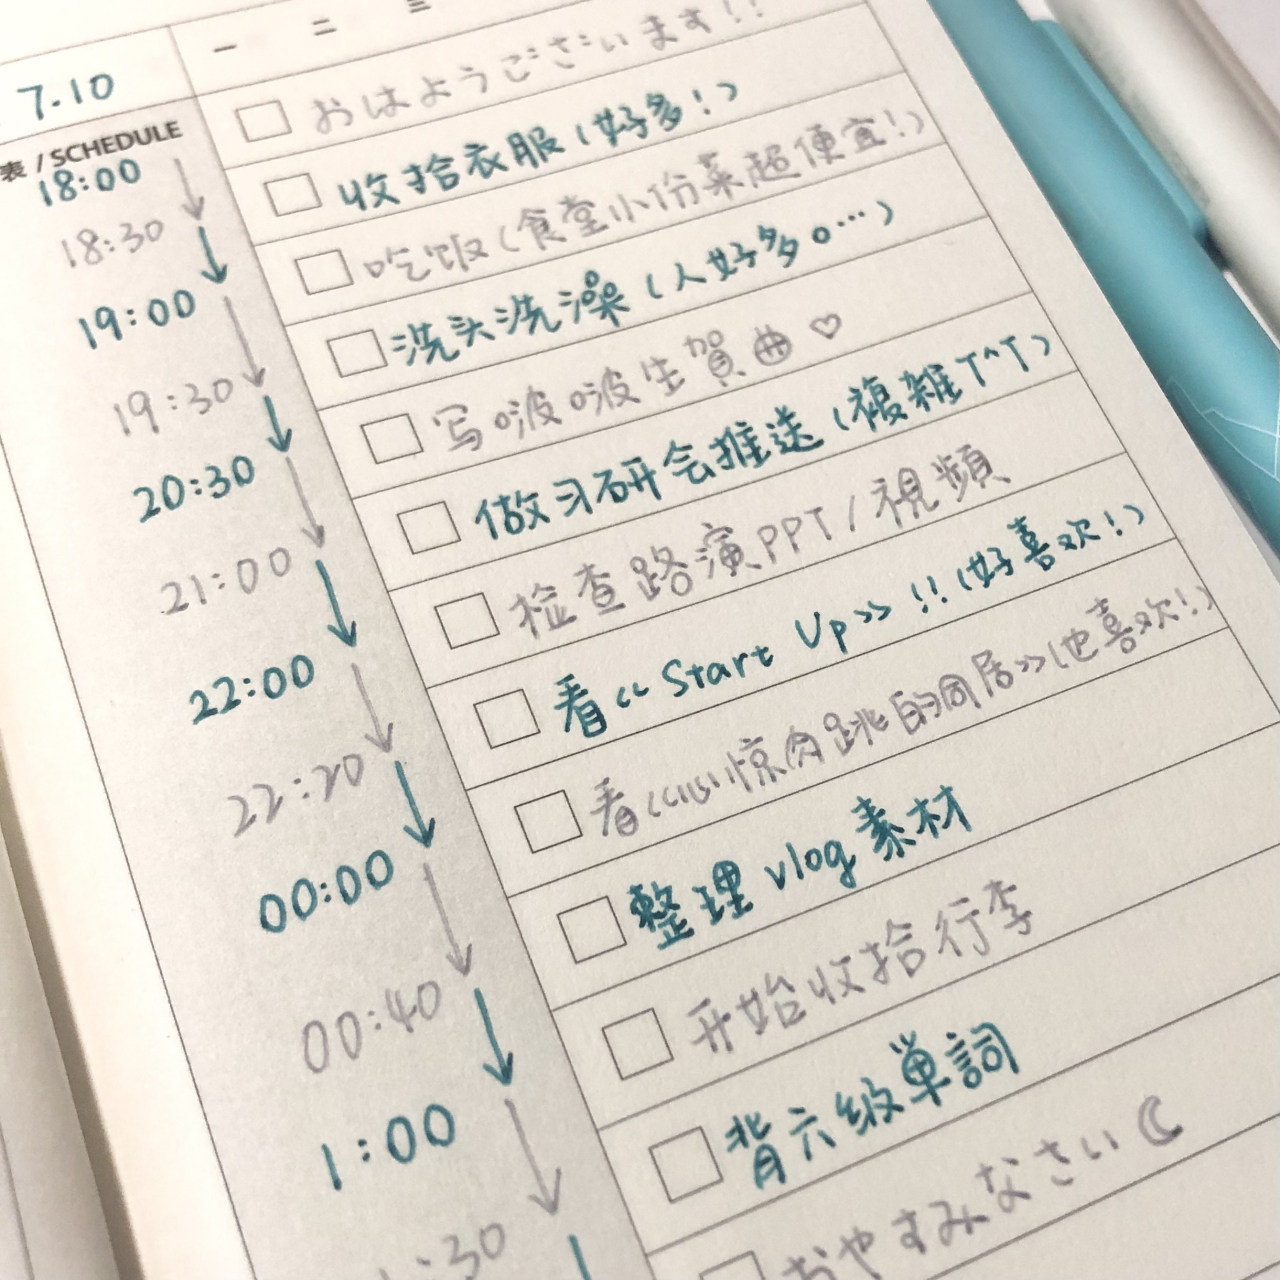 一 二 三
7.10
表 / SCHEDULE
おはようございます!!
18:00
收拾衣服(好多!)
18:30
吃饭(食堂小份菜超便宜!)
19:00
洗头洗澡(人好多。…)
19:30
写啵啵生賀曲♡
20:30
做习研会推送(複雜T^T)
21:00
检查路演PPT/視頻
22:00
看《Start Up》!!(好喜欢!)
22:20
看《心惊肉跳的同居》(也喜欢!)
00:00
整理vlog素材
00:40
开始收拾行李
1:00
背六级单詞
:30
おやすみなさい